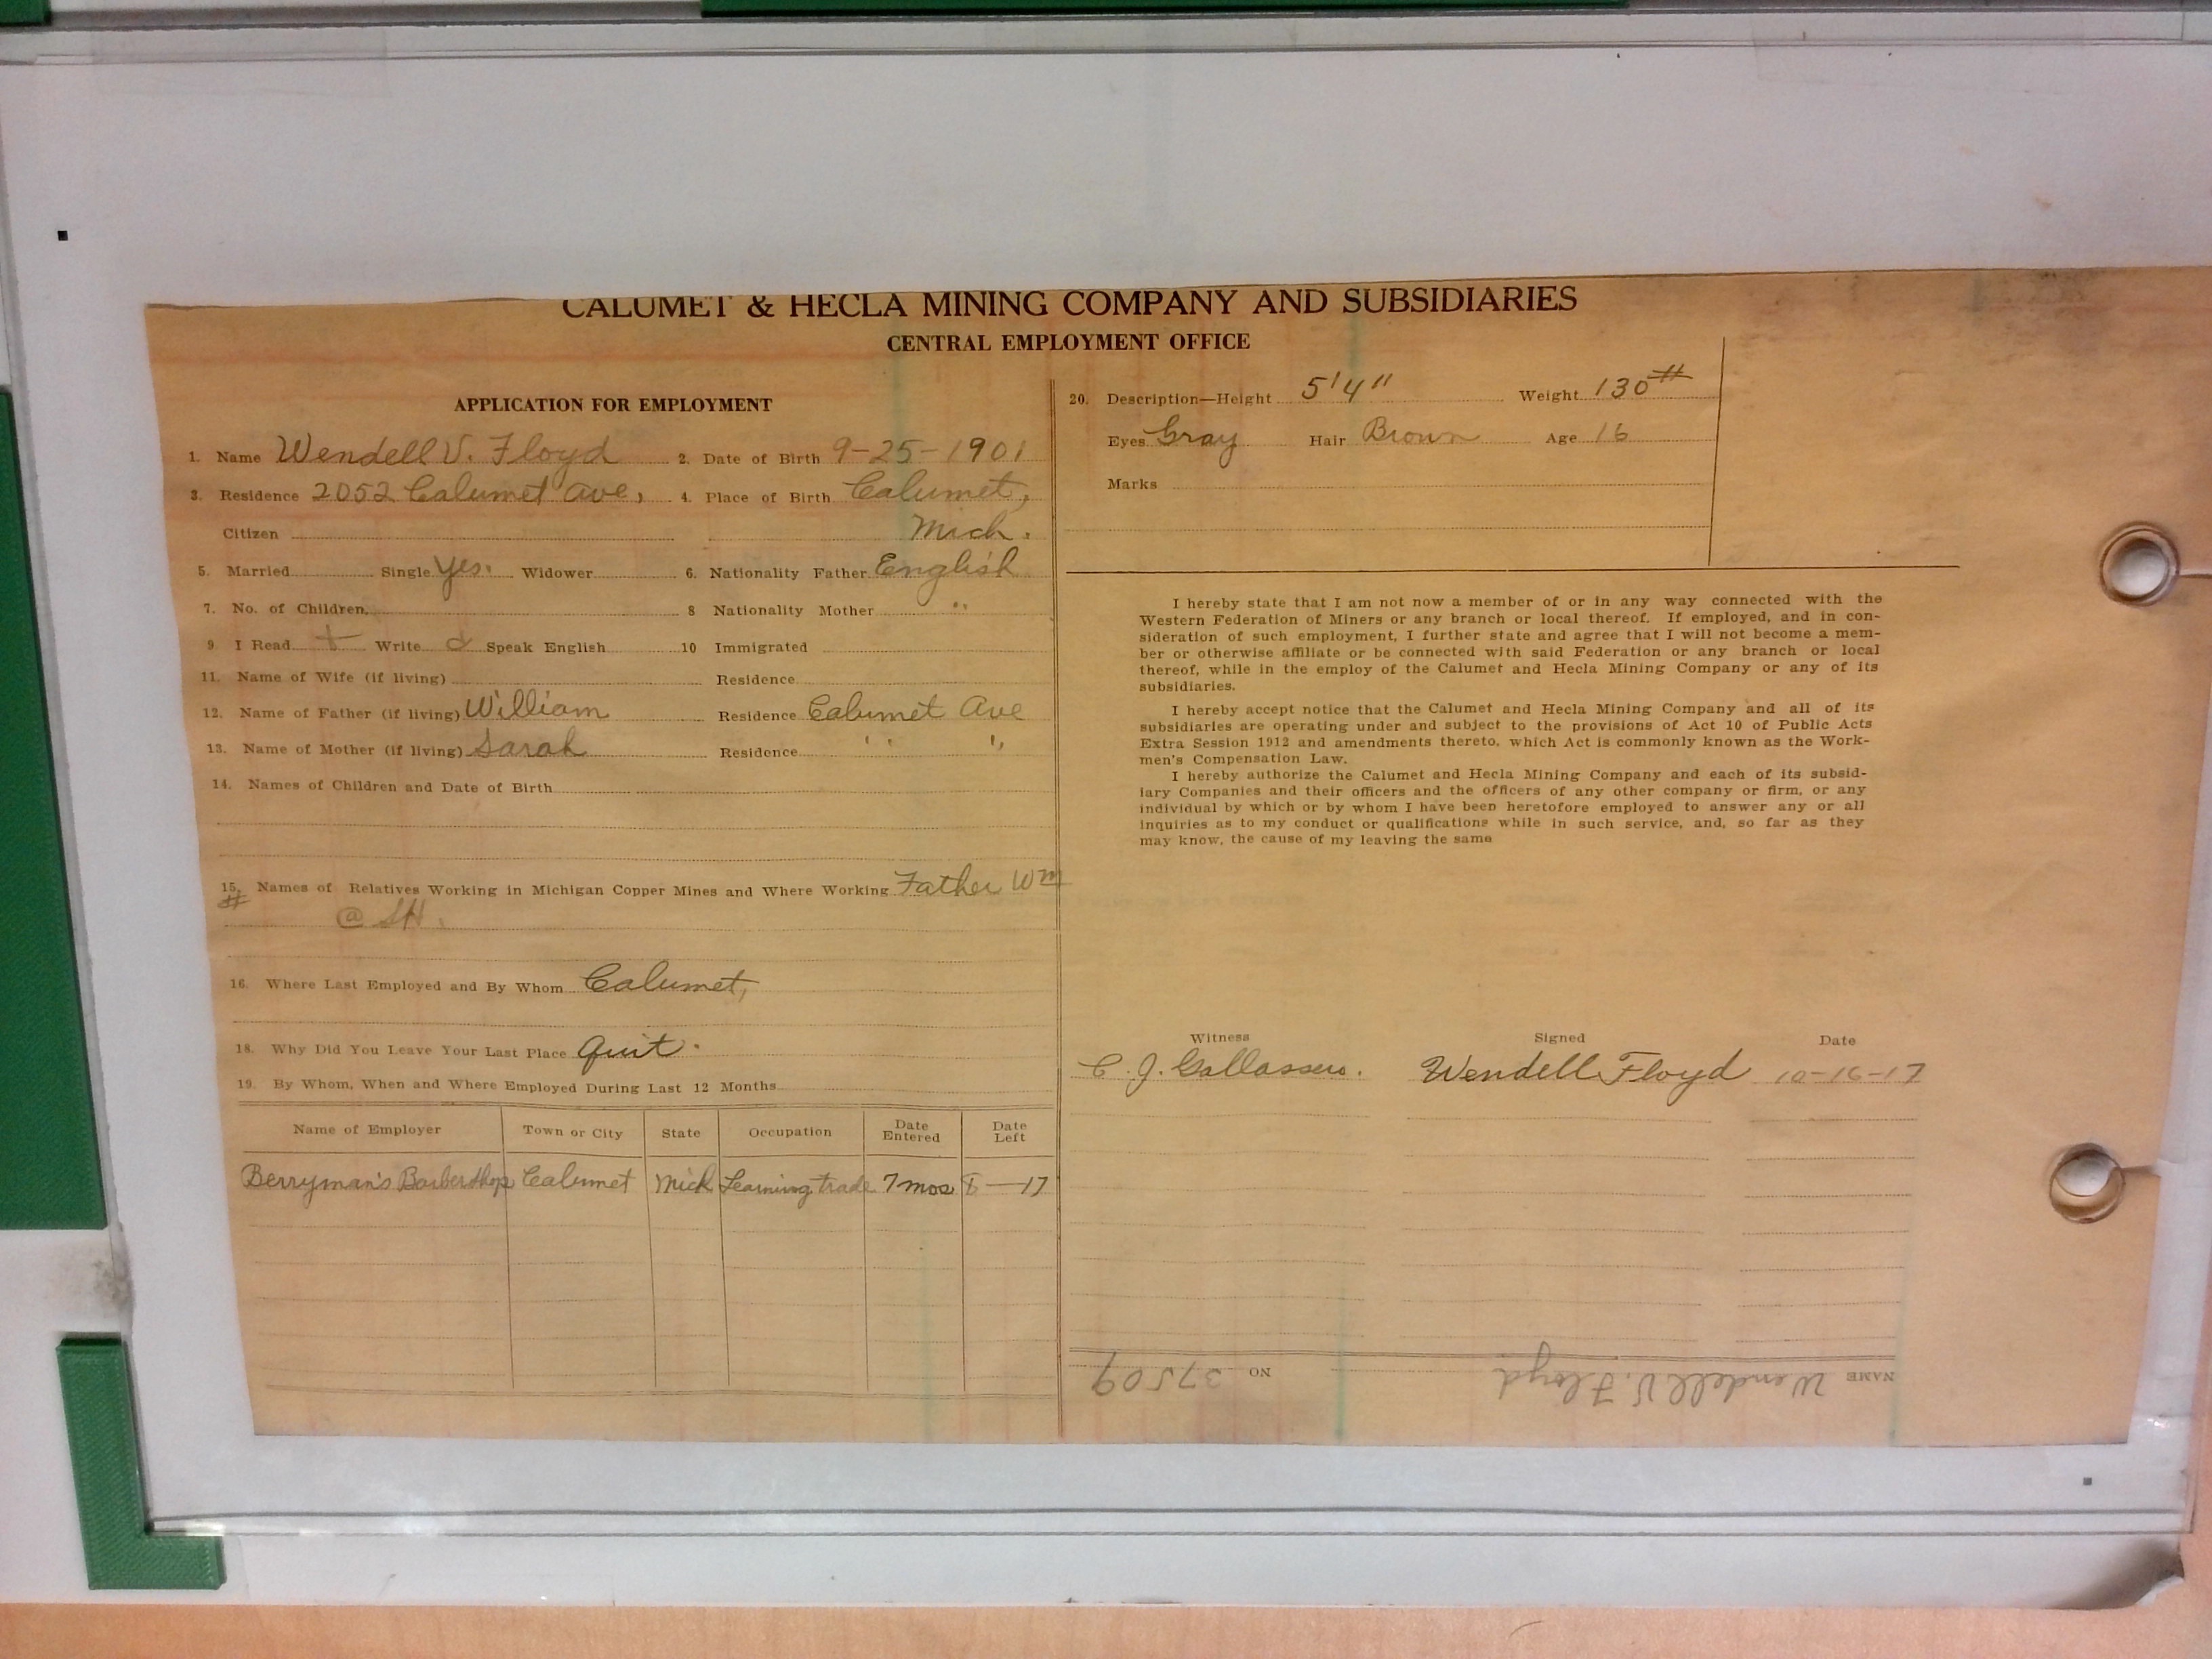 CALUMET & HECLA MINING COMPANY AND SUBSIDIARIES
CENTRAL EMPLOYMENT OFFICE
APPLICATION FOR EMPLOYMENT
1. Name Wendell V. Floyd 2. Date of Birth 9-25-1901
3. Residence 2052 Calumet Ave, 4. Place of Birth Calumet,
Citizen Mich.
5. Married Single Yes. Widower 6. Nationality Father English
7. No. of Children 8 Nationality Mother "
9. I Read Write Speak English 10 Immigrated
11. Name of Wife (if living) Residence
12. Name of Father (if living) William Residence Calumet Ave
13. Name of Mother (if living) Sarah Residence " "
14. Names of Children and Date of Birth
15. Names of Relatives Working in Michigan Copper Mines and Where Working Father Wm
# @ SH.
16. Where Last Employed and By Whom Calumet,
18. Why Did You Leave Your Last Place Quit.
19. By Whom, When and Where Employed During Last 12 Months
Name of Employer Town or City State Occupation Date Entered Date Left
Berryman's Barbershop Calumet Mich Learning trade 7 mos 17
20. Description—Height 5'4" Weight 130#
Eyes Gray Hair Brown Age 16
Marks
I hereby state that I am not now a member of or in any way connected with the
Western Federation of Miners or any branch or local thereof. If employed, and in con-
sideration of such employment, I further state and agree that I will not become a mem-
ber or otherwise affiliate or be connected with said Federation or any branch or local
thereof, while in the employ of the Calumet and Hecla Mining Company or any of its
subsidiaries.
I hereby accept notice that the Calumet and Hecla Mining Company and all of its
subsidiaries are operating under and subject to the provisions of Act 10 of Public Acts
Extra Session 1912 and amendments thereto, which Act is commonly known as the Work-
men's Compensation Law.
I hereby authorize the Calumet and Hecla Mining Company and each of its subsid-
iary Companies and their officers and the officers of any other company or firm, or any
individual by which or by whom I have been heretofore employed to answer any or all
inquiries as to my conduct or qualifications while in such service, and, so far as they
may know, the cause of my leaving the same
Witness Signed Date
C. J. Wendell Floyd 10-16-17
NAME Wendell V. Floyd NO 37509